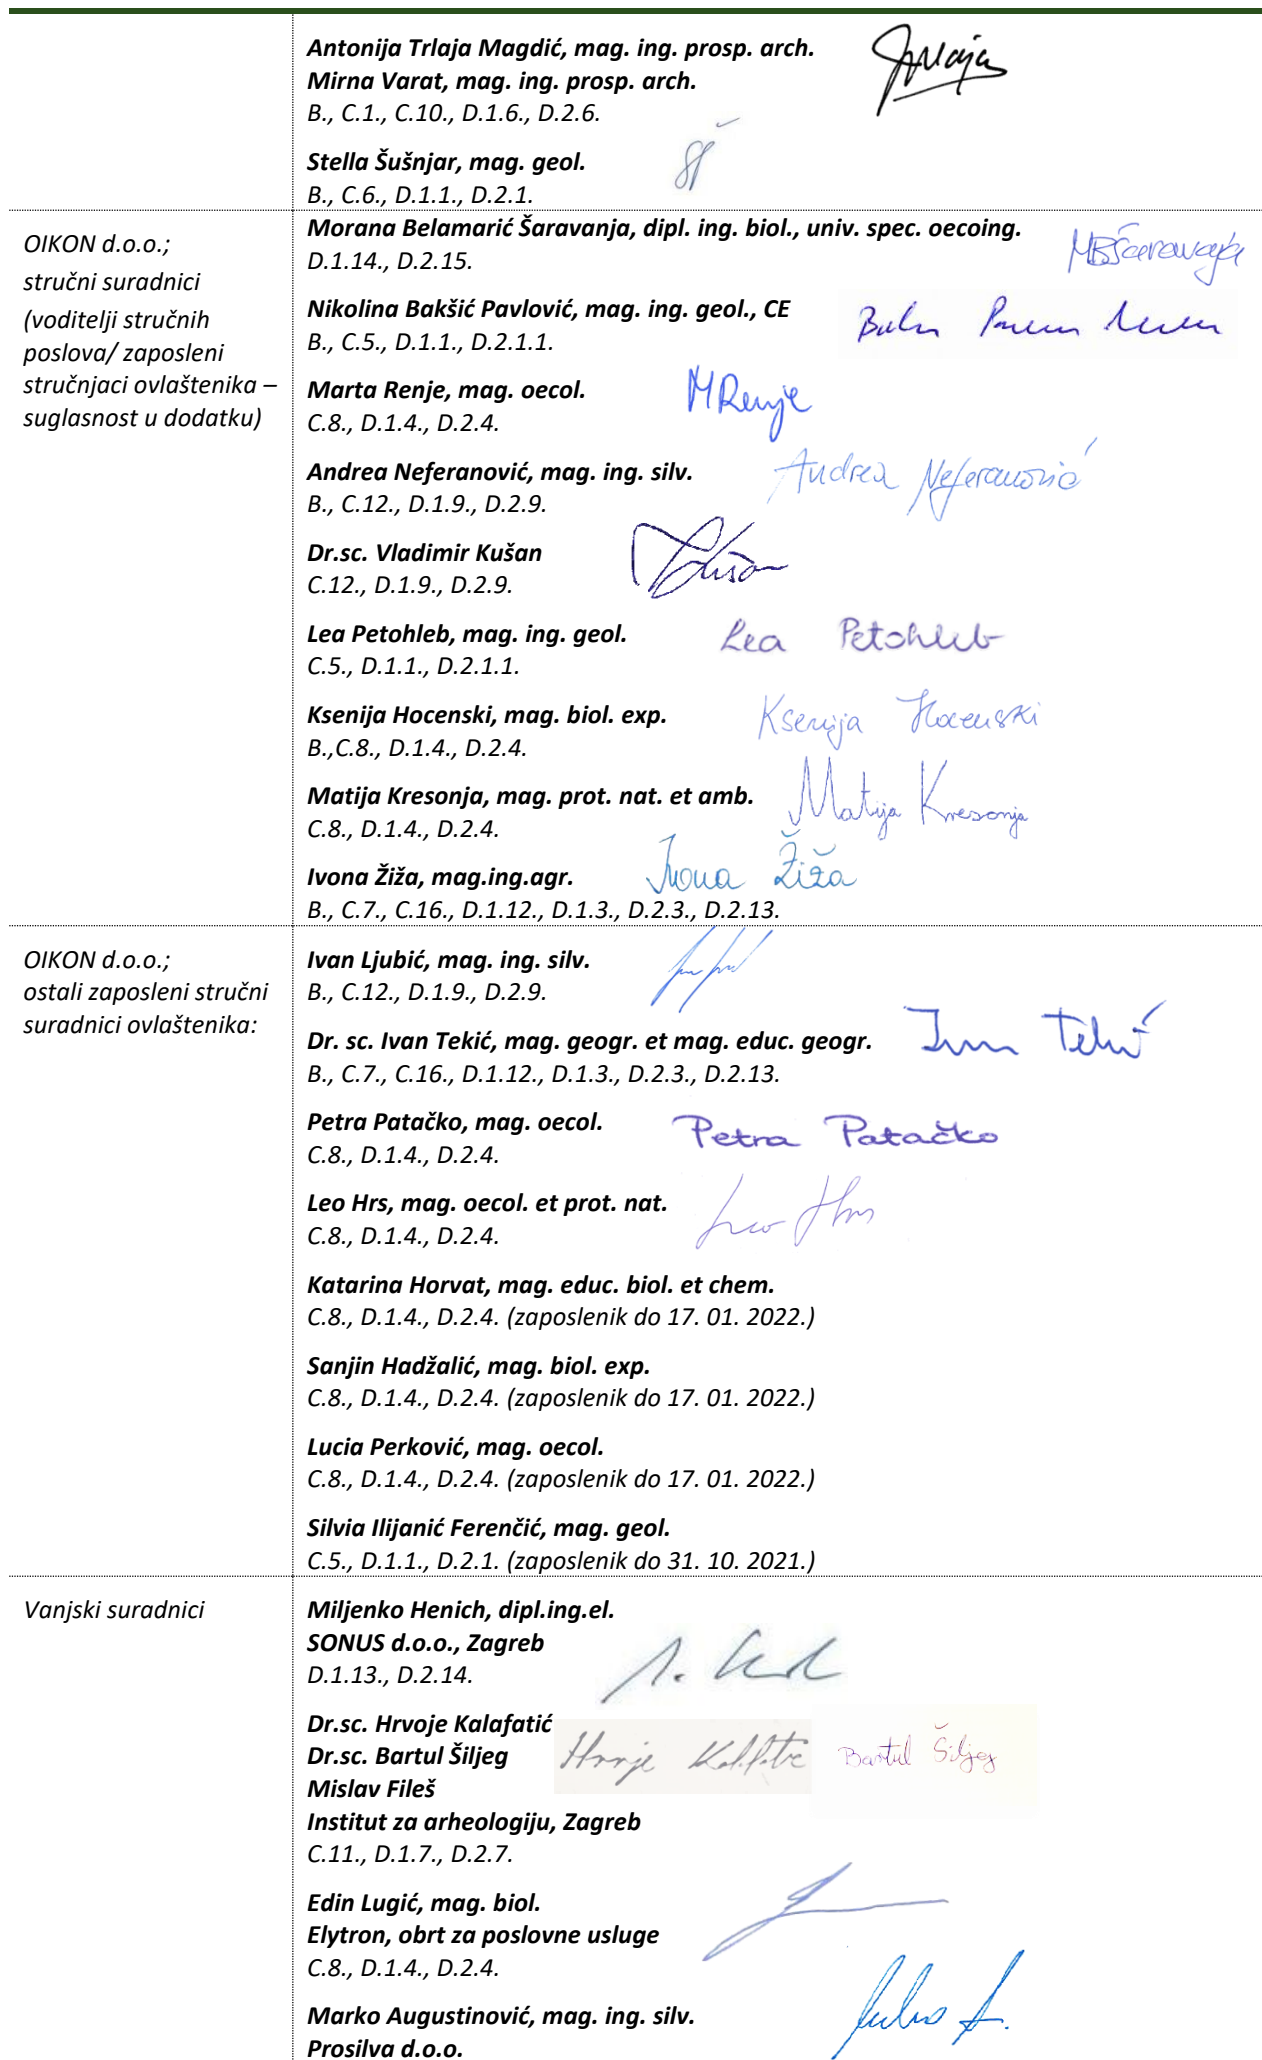 Antonija Trlaja Magdić, mag. ing. prosp. arch.
Mirna Varat, mag. ing. prosp. arch.
B., C.1., C.10., D.1.6., D.2.6.
Stella Šušnjar, mag. geol.
B., C.6., D.1.1., D.2.1.
OIKON d.o.o.;
stručni suradnici
(voditelji stručnih
poslova/ zaposleni
stručnjaci ovlaštenika –
suglasnost u dodatku)
Morana Belamarić Šaravanja, dipl. ing. biol., univ. spec. oecoing.
MBŠaravanja
D.1.14., D.2.15.
Nikolina Bakšić Pavlović, mag. ing. geol., CE
B., C.5., D.1.1., D.2.1.1.
Marta Renje, mag. oecol.
MRenje
C.8., D.1.4., D.2.4.
Andrea Neferanović, mag. ing. silv.
Andrea Neferanović
B., C.12., D.1.9., D.2.9.
Dr.sc. Vladimir Kušan
C.12., D.1.9., D.2.9.
Lea Petohleb, mag. ing. geol.
Lea Petohleb
C.5., D.1.1., D.2.1.1.
Ksenija Hocenski, mag. biol. exp.
Ksenija Hocenski
B.,C.8., D.1.4., D.2.4.
Matija Kresonja, mag. prot. nat. et amb.
Matija Kresonja
C.8., D.1.4., D.2.4.
Ivona Žiža, mag.ing.agr.
Ivona Žiža
B., C.7., C.16., D.1.12., D.1.3., D.2.3., D.2.13.
OIKON d.o.o.;
ostali zaposleni stručni
suradnici ovlaštenika:
Ivan Ljubić, mag. ing. silv.
B., C.12., D.1.9., D.2.9.
Dr. sc. Ivan Tekić, mag. geogr. et mag. educ. geogr.
Ivan Tekić
B., C.7., C.16., D.1.12., D.1.3., D.2.3., D.2.13.
Petra Patačko, mag. oecol.
Petra Patačko
C.8., D.1.4., D.2.4.
Leo Hrs, mag. oecol. et prot. nat.
Leo Hrs
C.8., D.1.4., D.2.4.
Katarina Horvat, mag. educ. biol. et chem.
C.8., D.1.4., D.2.4. (zaposlenik do 17. 01. 2022.)
Sanjin Hadžalić, mag. biol. exp.
C.8., D.1.4., D.2.4. (zaposlenik do 17. 01. 2022.)
Lucia Perković, mag. oecol.
C.8., D.1.4., D.2.4. (zaposlenik do 17. 01. 2022.)
Silvia Ilijanić Ferenčić, mag. geol.
C.5., D.1.1., D.2.1. (zaposlenik do 31. 10. 2021.)
Vanjski suradnici
Miljenko Henich, dipl.ing.el.
SONUS d.o.o., Zagreb
D.1.13., D.2.14.
Dr.sc. Hrvoje Kalafatić
Dr.sc. Bartul Šiljeg
Hrvoje Kalafatić Bartul Šiljeg
Mislav Fileš
Institut za arheologiju, Zagreb
C.11., D.1.7., D.2.7.
Edin Lugić, mag. biol.
Elytron, obrt za poslovne usluge
C.8., D.1.4., D.2.4.
Marko Augustinović, mag. ing. silv.
Prosilva d.o.o.